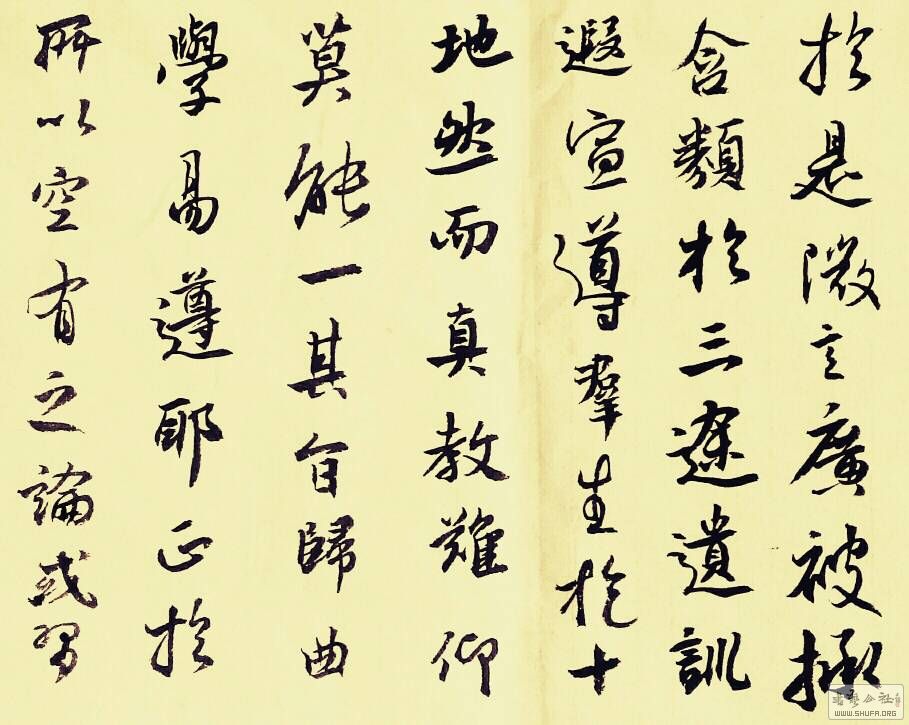 於是微言廣被拯
含類於三途遺訓
遐宣導羣生於十
地然而真教難仰
莫能一其旨歸曲
學易遵耶正於
所以空有之論或習
書藝公社
WWW.SHUFA.ORG